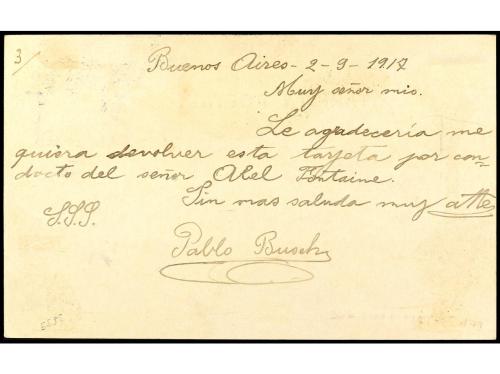 3/
Buenos Aires - 2 - 9 - 1917
Muy señor mio.
Le agradecería me
quiera devolver esta tarjeta por con-
ducto del señor Abel Fontaine.
Sin mas saluda muy atte
S.S.S.
Pablo Busch